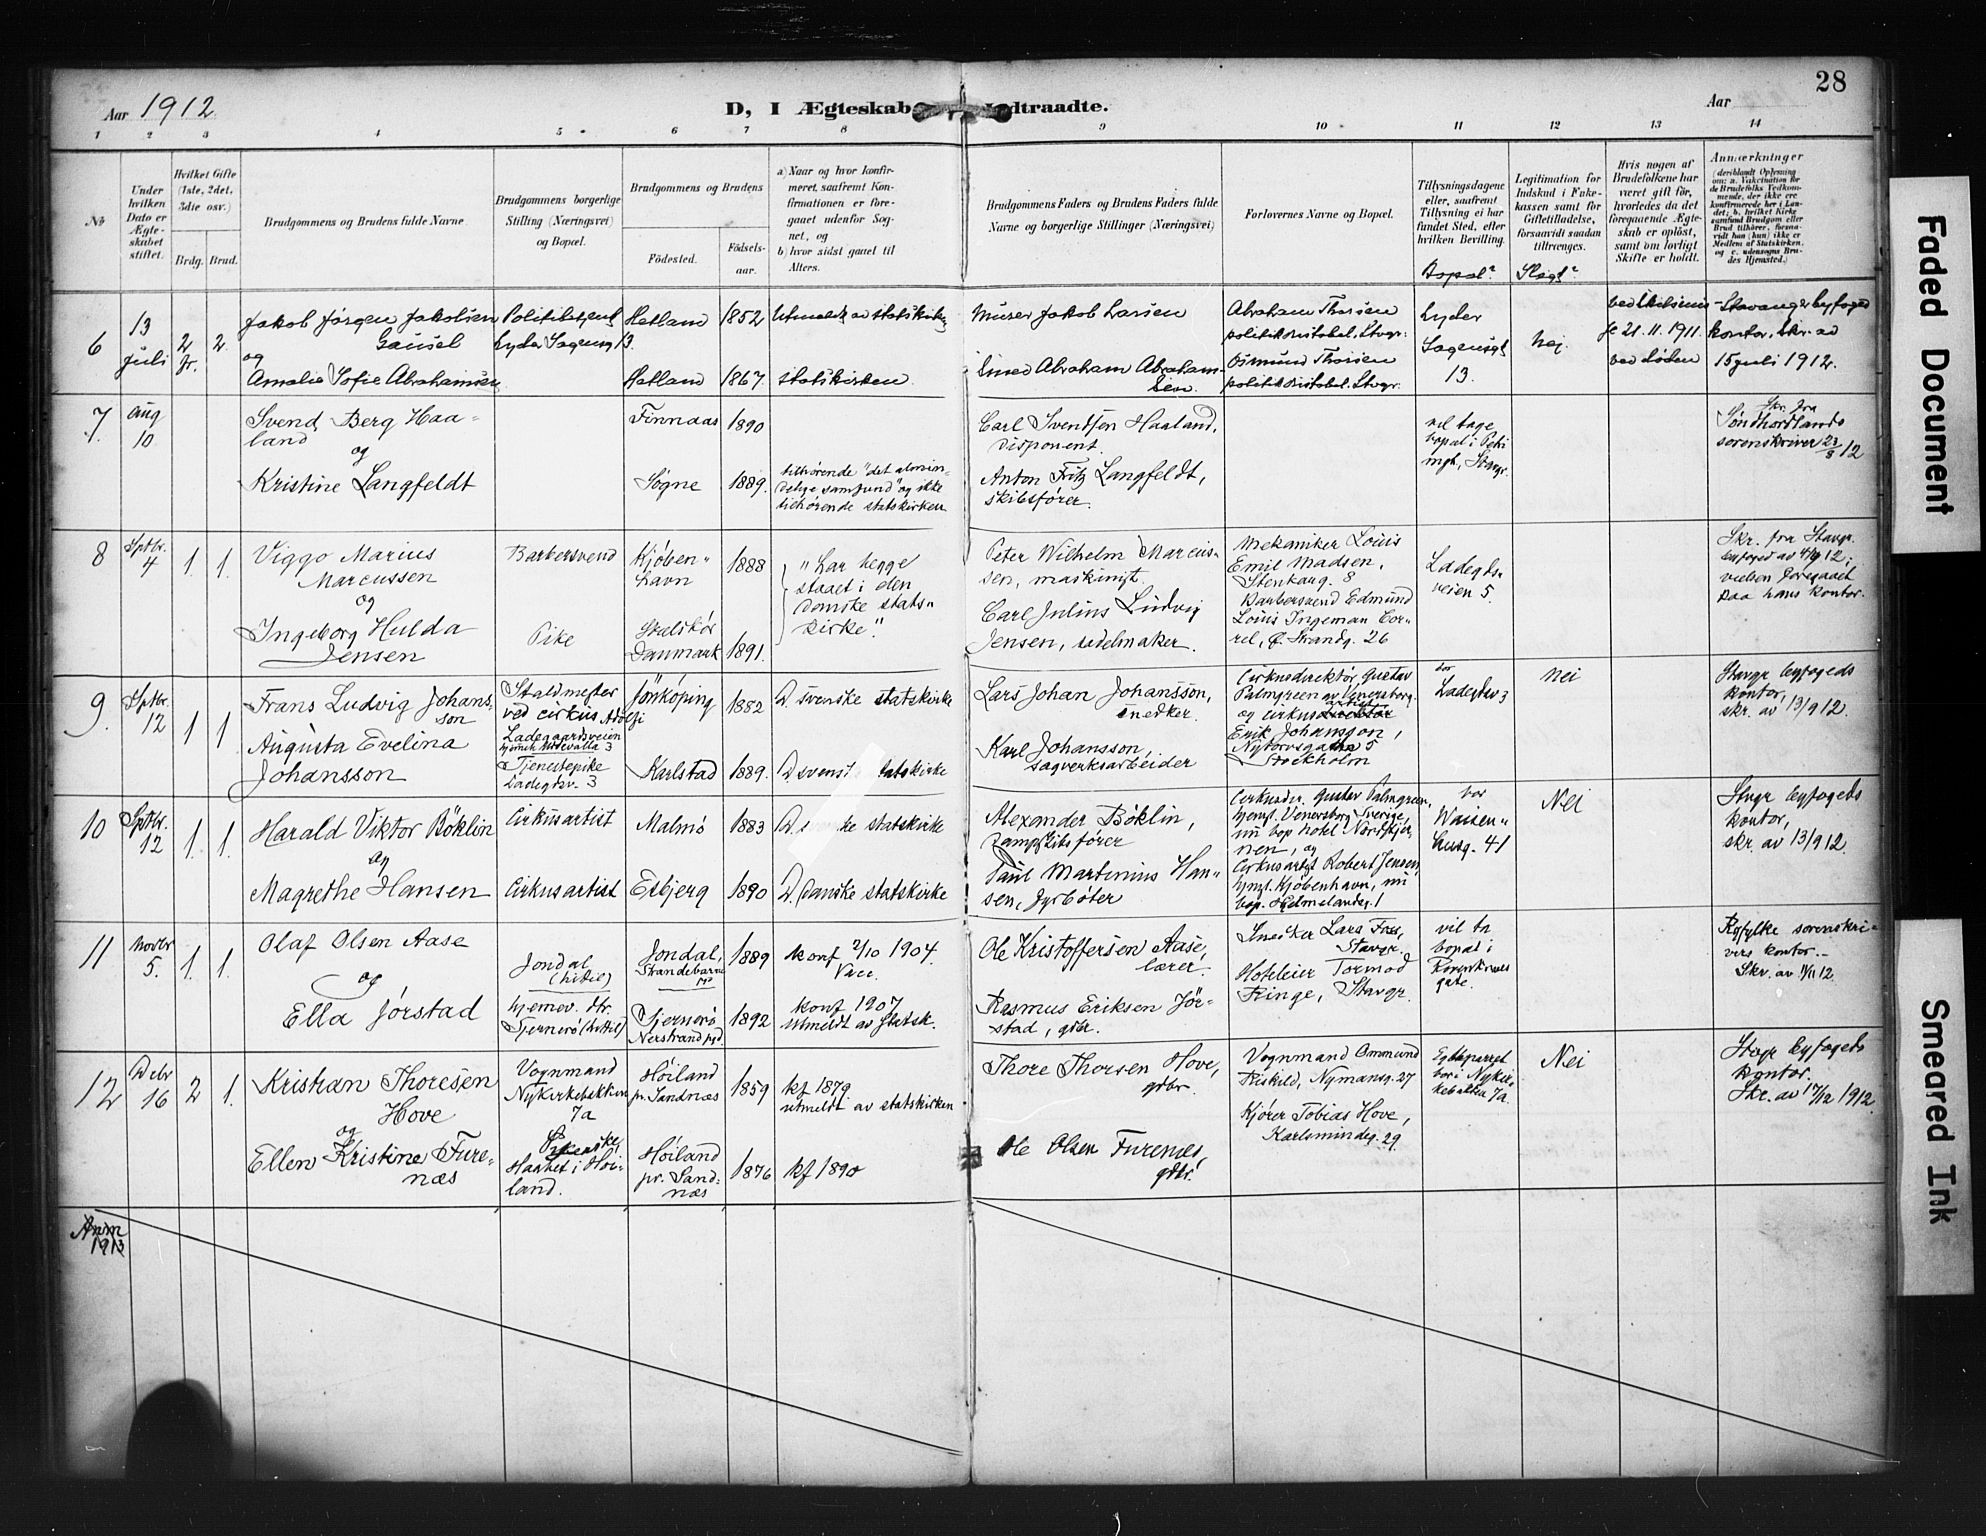 28
Aar 1912
D, I Ægteskab Indtraadte.
Aar
1 2 3 4 5 6 7 8 9 10 11 12 13 14
№
Under hvilken Dato er Ægteskabet stiftet.
Hvilket Gifte (1ste, 2det, 3die osv.)
Brdg. Brud.
Brudgommens og Brudens fulde Navne
Brudgommens borgerlige Stilling (Næringsvei) og Bopæl.
Brudgommens og Brudens
Fødested.
Fødselsaar.
a) Naar og hvor konfirmeret, saafremt Konfirmationen er foregaaet udenfor Sognet, og
b) hvor sidst gaaet til Alters.
Brudgommens Faders og Brudens Faders fulde Navne og borgerlige Stillinger (Næringsvei)
Forlovernes Navne og Bopæl.
Tillysningsdagene eller, saafremt Tillysning ei har fundet Sted, efter hvilken Bevilling.
Bopæl?
Legitimation for Indskud i Enkekassen samt for Giftetilladelse, forsaavidt saadan tiltrænges.
Slægt?
Hvis nogen af Brudefolkene har været gift før, hvorledes da det foregaaende Ægteskab er opløst, samt om lovligt Skifte er holdt.
Anmærkninger
(deriblandt Oplysning om: a. Vakcination for de Brudefolks Vedkommende, der ikke ere konfirmerede her i Landet; b. hvilket Kirkesamfund Brudgom eller Brud tilhører, forsaavidt han (hun) ikke er Medlem af Statskirken, og c. udensogns Brudes Hjemsted.)
6
13 Juli
2 fr.
2
Jakob Jørgen Jakobsen Gausel
og
Amalie Sofie Abrahamsen
Hetland 1852 Utmeldt av statskirken
Hetland 1867. statskirken
Murer Jakob Larsen
Smed Abraham Abrahamsen
Abraham Thorsen politikonstabel. Stvgr.
Osmund Thorsen politikonstabel. Stvgr.
Lyder Sagensgt 13.
Nej.
21.11.1911.
ved Døden
Stavanger byfoged kontor, Skr. av 15 juli 1912.
7.
Aug 10
Svend Berg Haaland
og
Kristine Langfeldt
Finnaas 1890
Søgne 1889.
tilhørende "det almindelige samfund" og ikke tilhørende statskirken
Carl Svendsen Haaland, disponent.
Anton Fritz Langfeldt, skibsfører.
vil tage bopæl i Stavgr.
Skr. fra Søndhordlands sorenskriver 23/8 12
8
Sptbr. 4
1. 1.
Viggo Marius Marcussen
og
Ingeborg Hulda Jensen
Barbersvend
Pike
Kjøbenhavn 1888
Skælskør Danmark 1891.
"har begge staaet i den danske statskirke".
Peter Wilhelm Marcussen, maskinist.
Carl Julius Ludvig Jensen, sadelmaker.
Mekaniker Louis Emil Madsen, Stenkarg. 8
Barbersvend Edmund Louis Ingeman Correl, Ø. Strandg. 26
Ladegdsveien 5.
Skr. fra Stavgr. byfoged av 4/9 12; vielsen foregaaet paa hans kontor.
9.
Sptbr. 12
1 1
Frans Ludvig Johansson
Augusta Evelina Johansson
Staldmester ved cirkus Adolfi
Ladegaardsveien 3
hjemh. Udevalla
Tjenestepike Ladegdsv. 3
Jönköping 1882 D. svenske statskirke
Karlstad 1889. D svenske statskirke
Lars Johan Johansson, snedker.
Karl Johansson, sagverksarbeider
Cirkusdirektør Gustav Palmgreen av Venersborg og cirkusartist Erik Johansson, Nytorvsgatan 5 Stockholm
bor Ladegdsv 3
nei
Stavgr byfogeds kontor, skr. av 13/9 12.
10
Sptbr. 12
1. 1.
Harald Viktor Böklin
og
Magrethe Hansen
Cirkusartist
Cirkusartist
Malmö 1883 D. svenske statskirke
Esbjerg 1890 D. danske statskirke
Alexander Böklin, Dampskibsfører
Paul Martinius Hansen, fyrbøter
Cirkusdir. Gustav Palmgreen, hjemst. Venersborg Sverige, nu bop hotel Nordstjernen, og
Cirkusartist Robert Jensen, hjmst. Kjøbenhavn, nu bop. Hjelmelandsg. 1
bor Waisenhusg. 41
Nei
Stvgr byfogeds kontor, skr. av 13/9 12.
11
Novbr 5.
1. 1.
Olaf Olsen Aase
og
Ella Jørstad
Jondal (hittil)
hjemov. str. Tjernerö (hittil)
Jondal, Strandebarm 1889 konf 2/10 1904.
Tjernerö Nerstrand pgd. 1892
konf 1907 utmeldt av statsk.
Ole Kristoffersen Aase, lærer.
Rasmus Eriksen Jørstad, gdbr.
Snedker Lars Foss, Stavgr.
Hoteleier Tormod Fringe, Stavgr.
vil ta bopæl i
gate.
Ryfylke sorenskrivers kontor.- Skr. av 1/11 12
12
Debr 16
2 1.
Kristian Thoresen Hove
og
Ellen Kristine Furenæs
Vognmand Nykirkebakken 7a
Høiland.
Høiland pr. Sandnæs 1859 kf 1879. utmeldt av statskirken
Høiland pr. Sandnæs 1876 kf 1890
Thore Thorsen Hove, gdbr.
Ole Olsen Furenæs, gdbr.
Vognmand Ommund Riskild, Nymansg. 27
Kjører Tobias Hove, Karlsmindeg. 29.
Egteparret bor i Nykirkebakken 7a.
Nei
Stvgr byfogeds kontor. Skr. av 17/12 1912.
Anm 1913
Faded Document
Smeared Ink